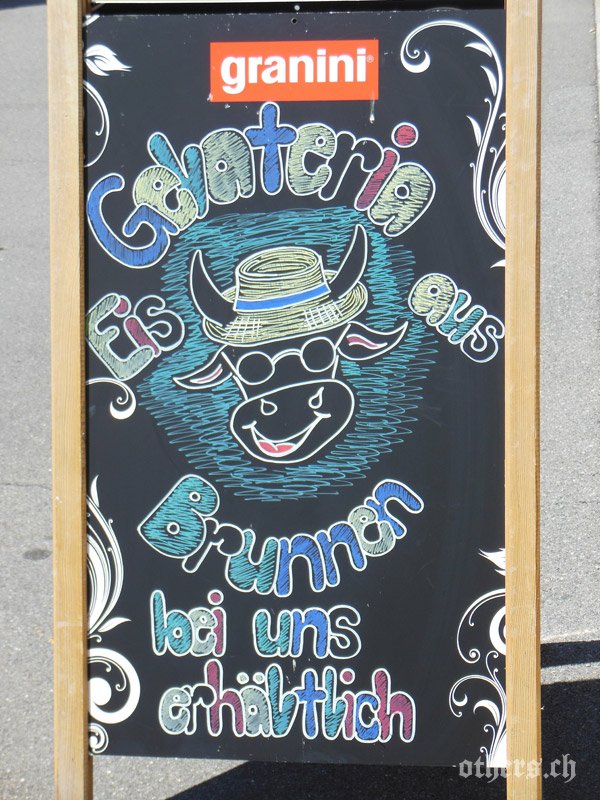 granini®
Gelateria
Eis aus
Brunnen
bei uns
erhältlich
others.ch